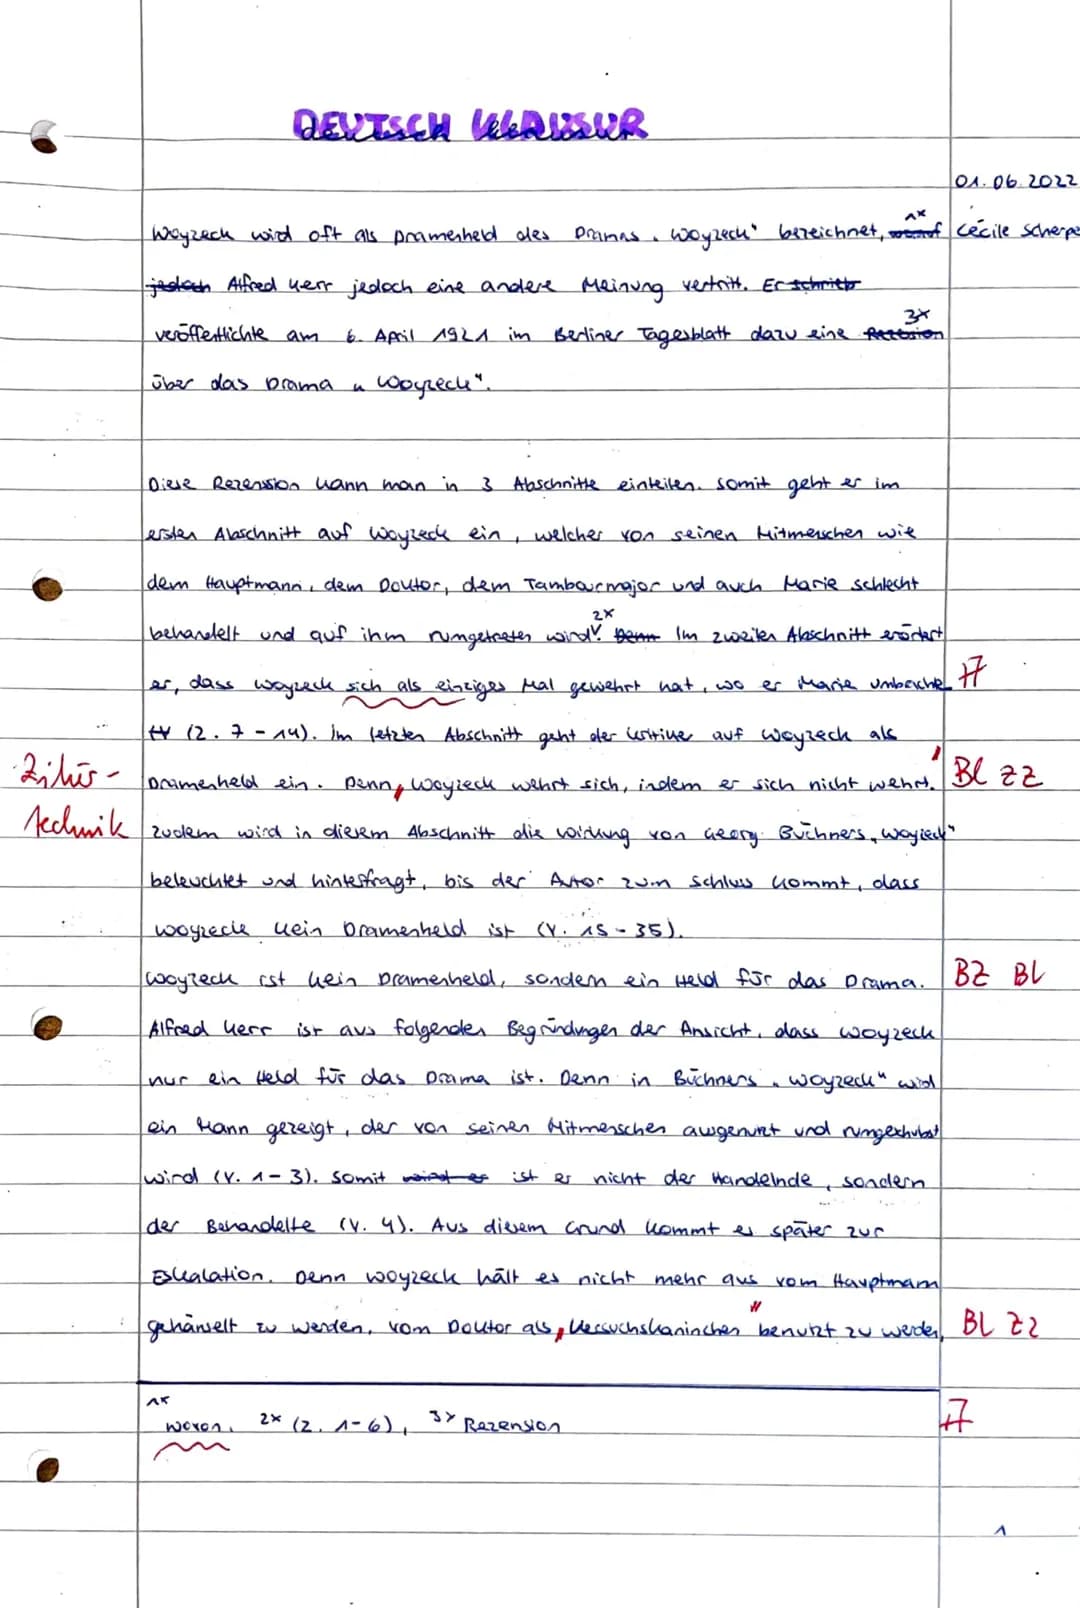 DEUTSCH KLAUSUR
01.06.2022
Woyzeck wird oft als Dramenheld des Dramas „Woyzeck" bezeichnet, 1x Cécile Scherpe
jedoch Alfred Kerr jedoch eine andere Meinung vertritt. Er schrieb
veröffentlichte am 6. April 1921 im Berliner Tagesblatt dazu eine Rezension 3x
über das Drama „Woyzeck".
Diese Rezension kann man in 3 Abschnitte einteilen. Somit geht er im
ersten Abschnitt auf Woyzeck ein, welcher von seinen Mitmenschen wie
dem Hauptmann, dem Doktor, dem Tambourmajor und auch Marie schlecht
behandelt und auf ihm rumgetreten wird 2x. Denn Im zweiten Abschnitt erörtert
er, dass Woyzeck sich als einziges Mal gewehrt hat, wo er Marie umbrachte A
(Z. 7-14). Im letzten Abschnitt geht der Kritiker auf Woyzeck als
Zitier- Dramenheld ein. Denn „Woyzeck wehrt sich, indem er sich nicht wehrt." Bl ZZ
technik Zudem wird in diesem Abschnitt die Wirkung von Georg Büchners „Woyzeck"
beleuchtet und hinterfragt, bis der Autor zum Schluss kommt, dass
Woyzeck kein Dramenheld ist (V. 15-35).
Woyzeck ist kein Dramenheld, sondern ein Held für das Drama. BZ BL
Alfred Kerr ist aus folgenden Begründungen der Ansicht, dass Woyzeck
nur ein Held für das Drama ist. Denn in Büchners „Woyzeck" wird
ein Mann gezeigt, der von seinen Mitmenschen ausgenutzt und rumgeschubst
wird (V. 1-3). Somit wird er ist er nicht der Handelnde, sondern
der Behandelte (V. 4). Aus diesem Grund kommt es später zur
Eskalation. Denn Woyzeck hält es nicht mehr aus vom Hauptmann
gehänselt zu werden, vom Doktor als „Versuchskaninchen" benutzt zu werden, BL ZZ
1x wovon, 2x (Z. 1-6), 3x Rezension A
1